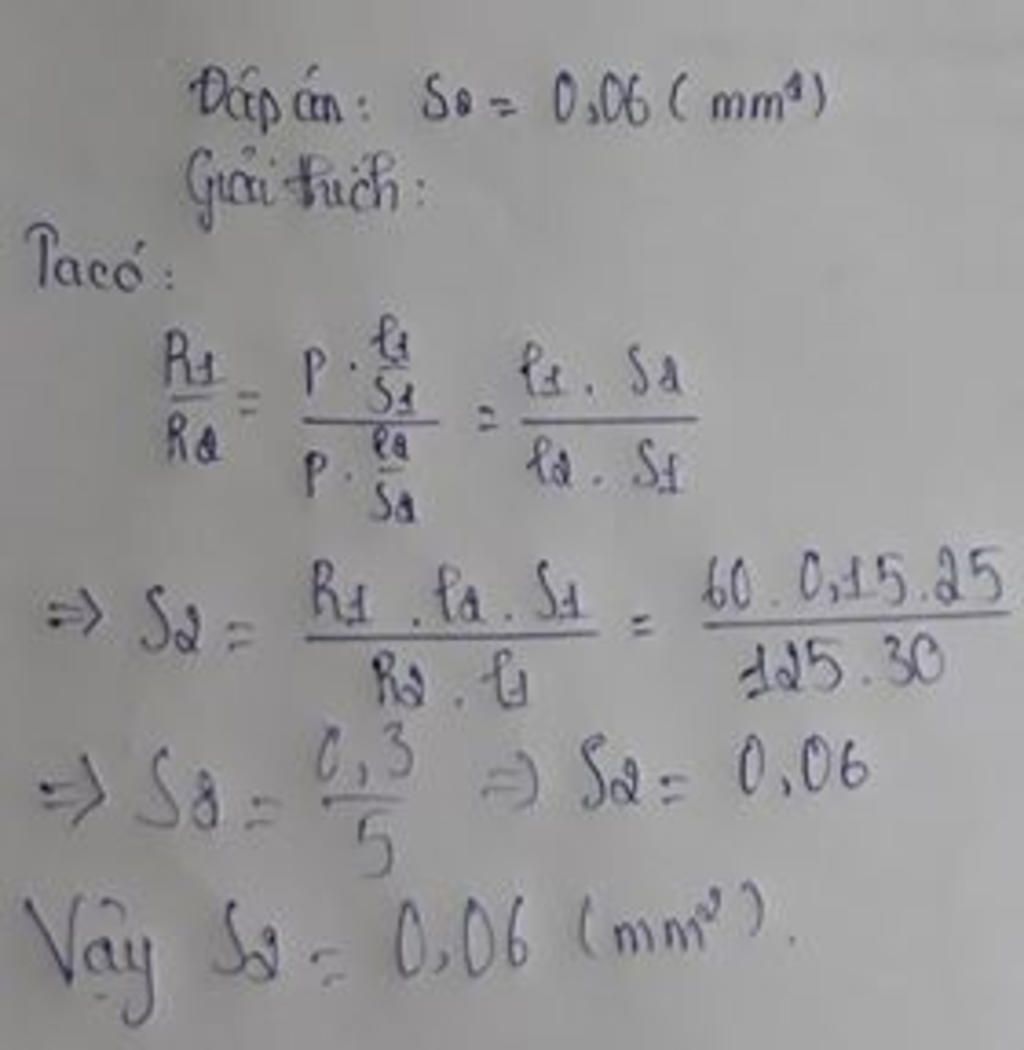 Đáp án: S2 = 0,06 (mm²)
Giải thích:
Ta có:
R1/R2 = (p . l1/S1)/(p . l2/S2) = (l1 . S2)/(l2 . S1)
=> S2 = (R1 . l2 . S1)/(R2 . l1) = (60 . 0,15 . 25)/(125 . 30)
=> S2 = 0,3/5 => S2 = 0,06
Vậy S2 = 0,06 (mm²).